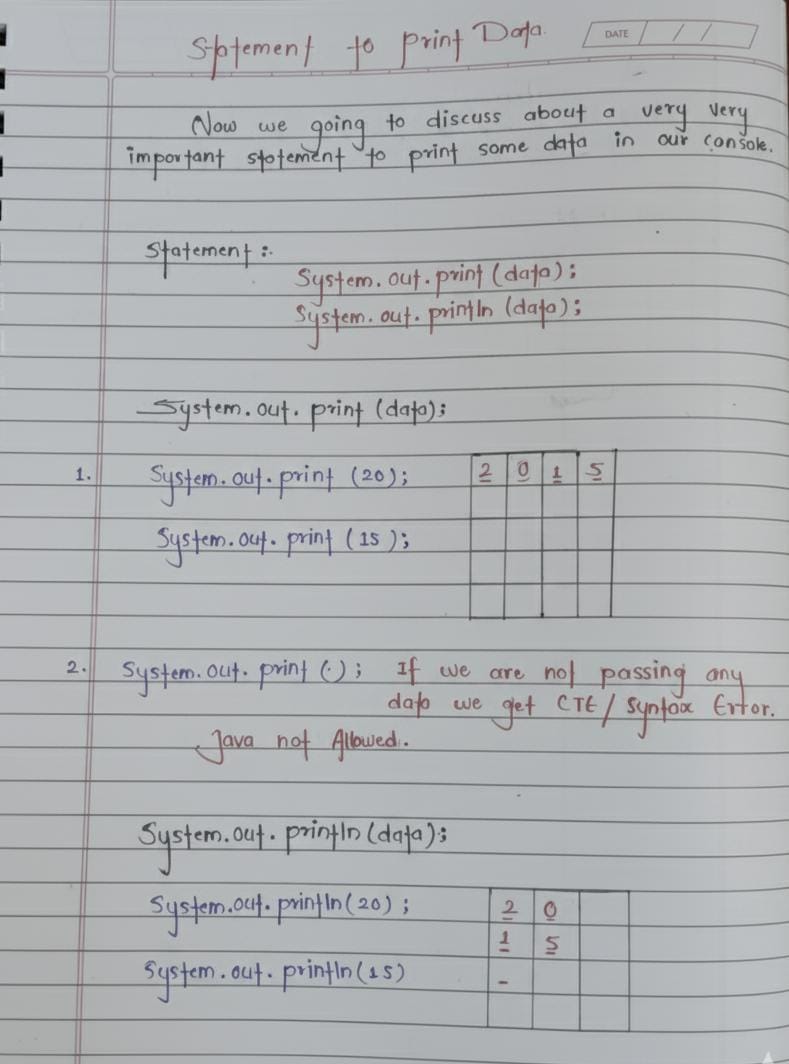 Statement to print Data.
DATE / /
Now we going to discuss about a very very
important statement to print some data in our console.
Statement :-
System.out.print (data);
System.out.println (data);
System.out.print (data);
1. System.out.print (20); 2 0 1 5
System.out.print (15);
2. System.out.print (.); If we are not passing any
data we get CTE/ Syntax Error.
Java not Allowed.
System.out.println(data);
System.out.println(20); 2 0
1 5
System.out.println(15) -